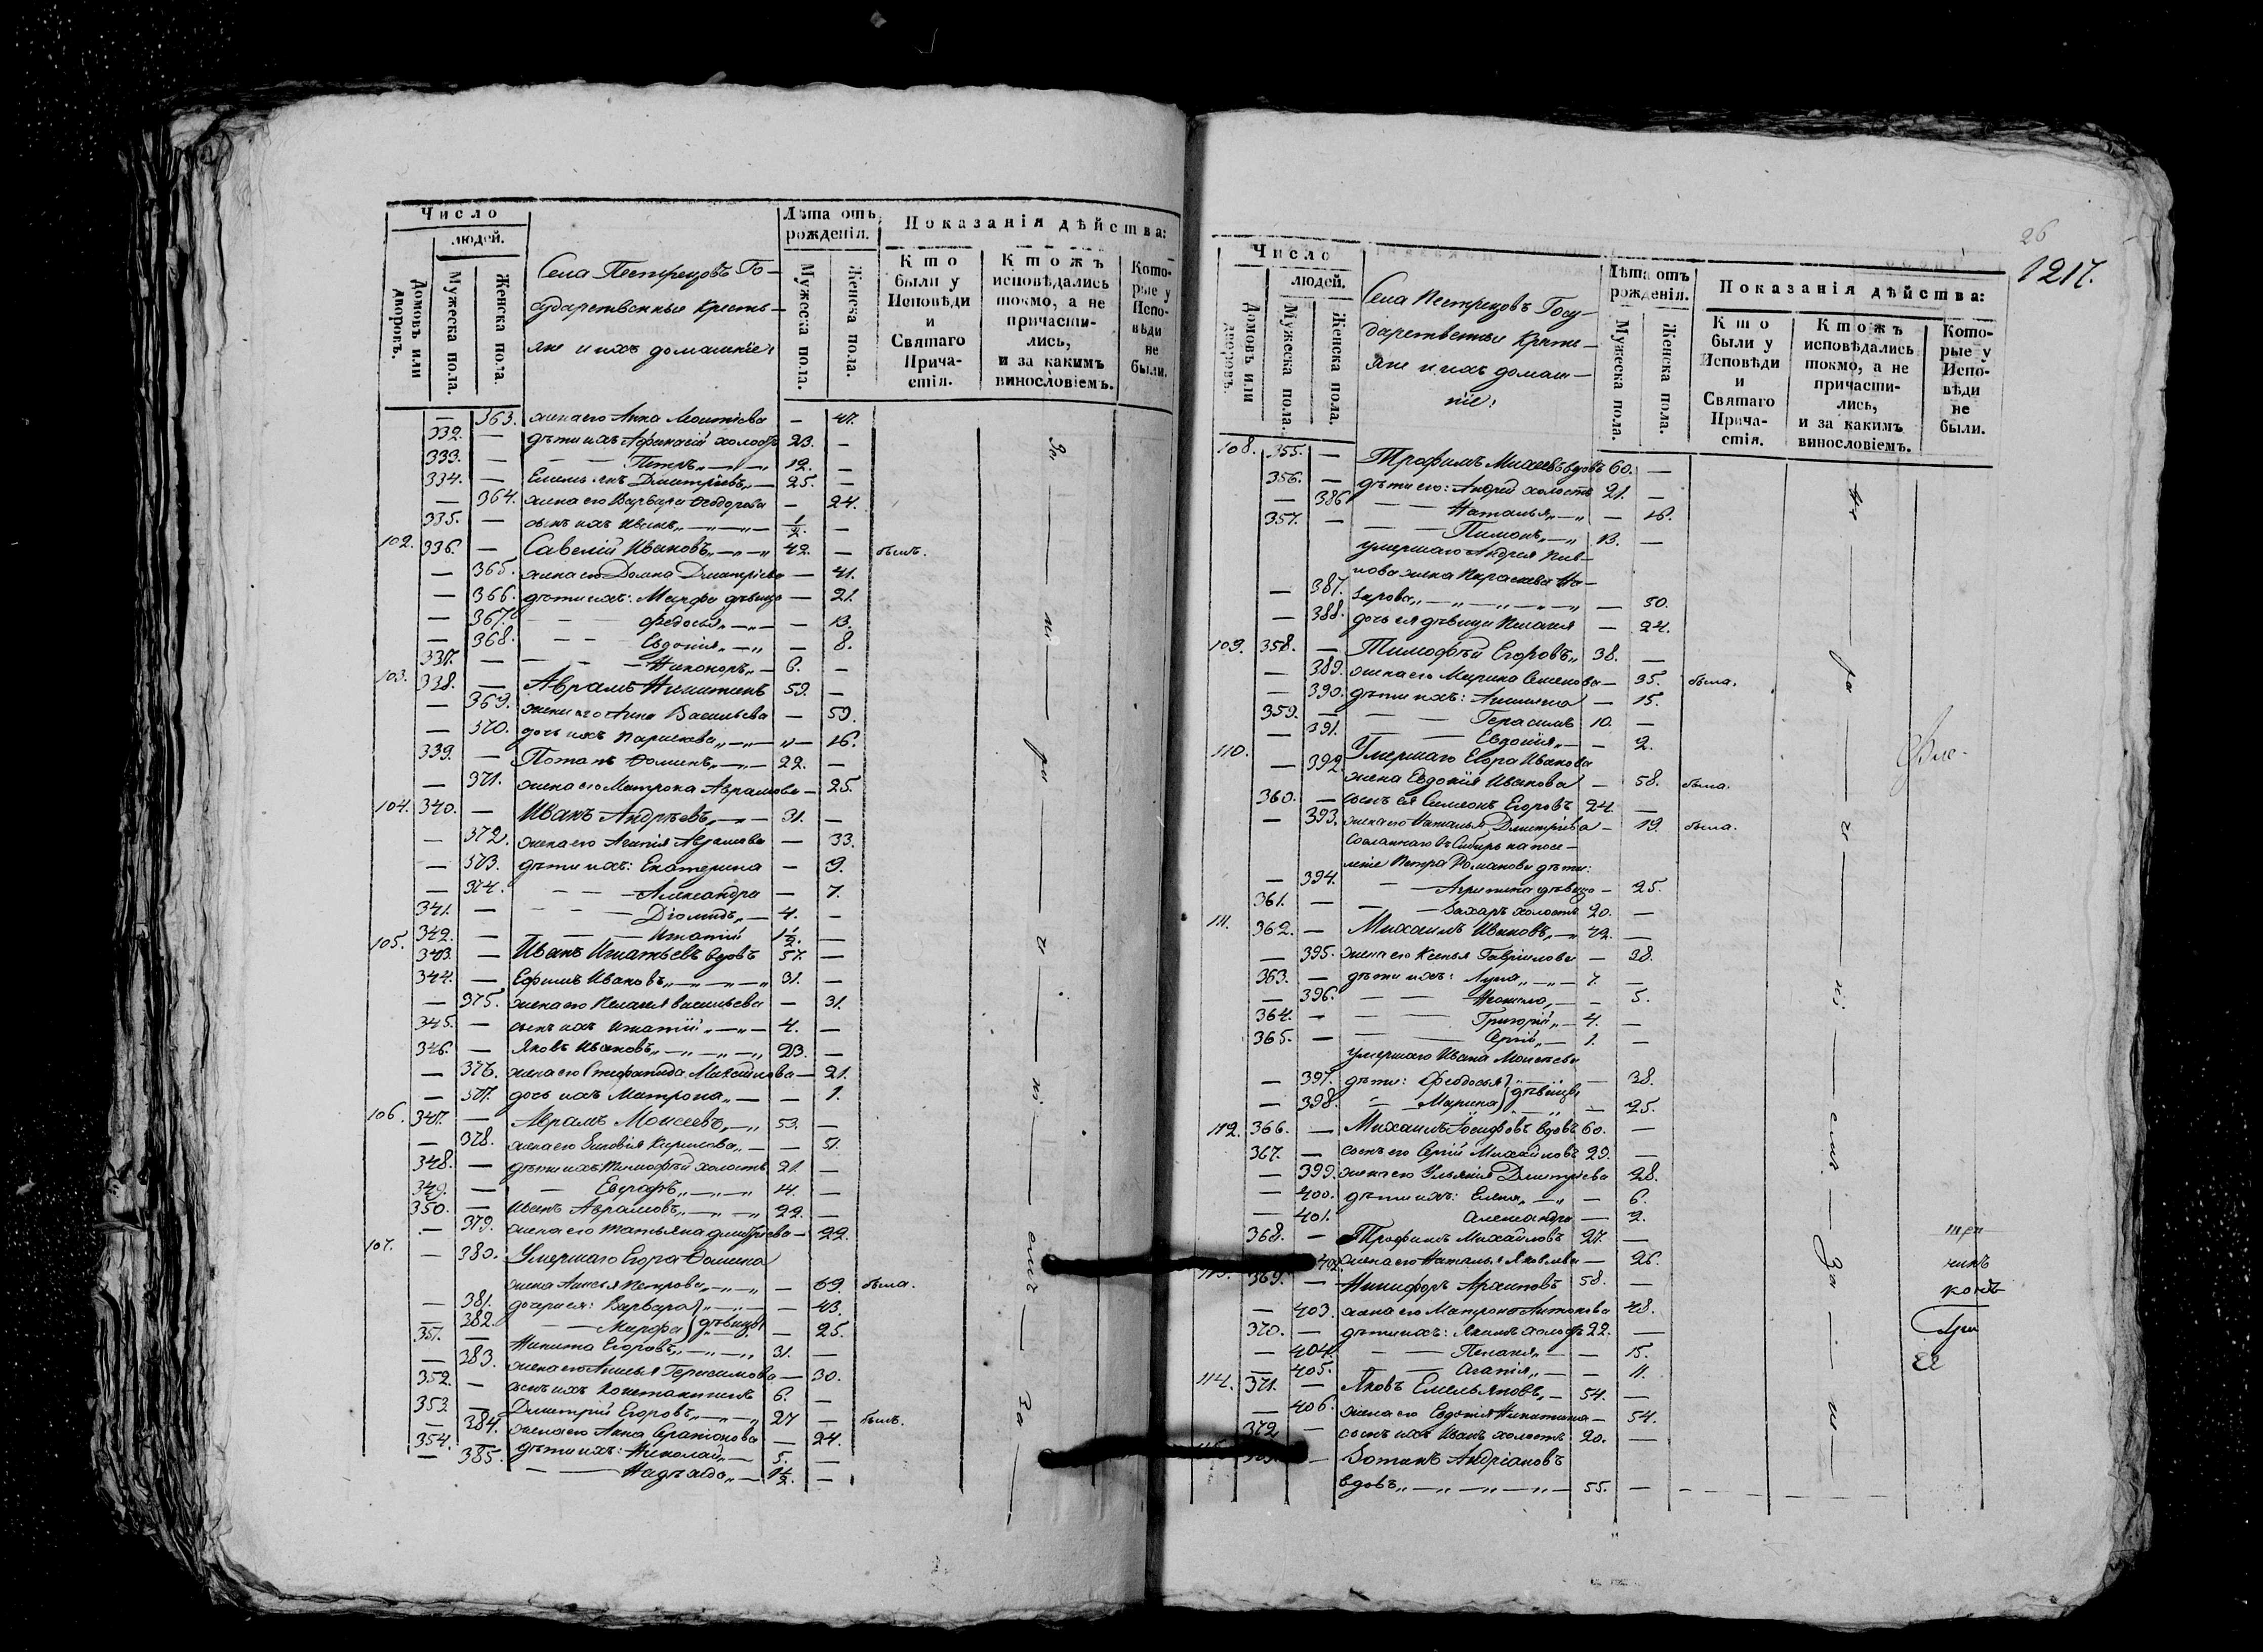 Число
людей.
Домовъ или дворовъ.
Мужеска пола.
Женска пола.
Села Пестрецовъ Го-
сударственные кресть-
яне и ихъ домашніе:
Лѣта отъ рожденія.
Мужеска пола.
Женска пола.
Показанія дѣйства:
Кто были у Исповѣди и Святаго Прича-стія.
Ктожъ исповѣдались токмо, а не причасти-лись, и за какимъ винословіемъ.
Кото-рые у Испо-вѣди не были.
— 363. жена его Анна Леонтіева — 47.
332. — дѣти ихъ Афанасій холостъ 23. —
333. — — — Петръ „ — „ 12. —
334. — Емельянъ Дмитріевъ „ — 25. —
— 364. жена его Варвара Ѳеодорова — 24.
335. — сынъ ихъ Иванъ „ — „ — 1/2. —
102. 336. — Савелій Ивановъ „ — „ 42. — былъ.
— 365. жена его Домна Дмитріева — 41.
— 366. дѣти ихъ: Марфа дѣвица — 21.
— 367. — — Ѳедосья „ — „ — 13.
— 368. — — Евдокія „ — „ — 8.
337. — — — Никоноръ „ — 6. —
103. 338. — Аврамъ Никитинъ 59. —
— 369. жена его Анна Васильева — 59.
— 370. дочь ихъ Параскева „ — „ — 16.
339. — Потапъ Ѳоминъ „ — „ — 22. —
— 371. жена его Матрона Аврамова — 25.
104. 340. — Иванъ Андрѣевъ „ — „ — 31. —
— 372. жена его Агапія Аврамова — 33.
— 373. дѣти ихъ: Екатерина — 9.
— 374. — — Александра — 7.
341. — — — Діомидъ „ — 4. —
342. — — — Игнатій 1 1/2. —
105. 343. — Иванъ Игнатьевъ вдовъ 57. —
344. — Ефимъ Ивановъ „ — „ — „ 31. —
— 375. жена его Пелагея Васильева — 31.
345. — сынъ ихъ Игнатій „ — „ — 4. —
346. — Яковъ Ивановъ „ — „ — „ 23. —
— 376. жена его Стефанида Михайлова — 21.
— 377. дочь ихъ Матрона „ — — 1.
106. 347. — Аврамъ Моисеевъ „ — „ 53. —
— 378. жена его Зиновія Кирилова „ — — 51.
348. — дѣти ихъ Тимофѣй холостъ 21. —
349. — — Евграфъ „ — „ — „ 14. —
350. — Иванъ Аврамовъ „ — „ — „ 22. —
— 379. жена его Татьяна Дмитріева — 22.
107. — 380. Умершаго Егора Ѳомина
жена Анисья Петрова „ — „ — — 69. была.
— 381. дочери ея: Варвара } „ — „ — — 43.
— 382. — — Марфа } дѣвицы — 25.
351. — Никита Егоровъ „ — „ — „ 31. —
— 383. жена его Анисья Герасимова — 30.
352. — сынъ ихъ Константинъ 6. —
353. — Дмитрій Егоровъ „ — „ — „ 27 — былъ.
— 384. жена его Анна Серапіонова — 24.
354. — дѣти ихъ: Николай „ — 5. —
— 385. — — Надежда „ — 1 1/2. —
за
не
ра
и
ні
емъ
За
26
1217.
Число
людей.
Домовъ или дворовъ.
Мужеска пола.
Женска пола.
Села Пестрецовъ Госу-
дарственные Кресть-
яне и ихъ домаш-
ніе:
Лѣта отъ рожденія.
Мужеска пола.
Женска пола.
Показанія дѣйства:
Кто были у Исповѣди и Святаго Прича-стія.
Ктожъ исповѣдались токмо, а не причасти-лись, и за какимъ винословіемъ.
Кото-рые у Испо-вѣди не были.
108. 355. — Трофимъ Михеевъ вдовъ 60. —
356. — дѣти его: Андрей холостъ 21. —
— 386 — — Наталья „ — „ — 16.
357. — — — Пимонъ „ — „ 13. —
умершаго Андрея
жена Параскева На-
— 387. зарова „ — „ — „ — „ — „ — 50.
— 388. дочь ея дѣвица Пелагея — 24.
109. 358. — Тимофѣй Егоровъ „ 38. —
— 389. жена его Марина Семенова — 35. была.
— 390. дѣти ихъ: Анисья — 15.
359. — — — Герасимъ 10. —
— 391. — — Евдокія „ — — 2.
110. — 392. Умершаго Егора Иванова
жена Евдокія Иванова — 58. была.
360. — сынъ ея Симеонъ Егоровъ 24. —
— 393. жена его Наталья Дмитріева — 19. была.
Сосланнаго въ Сибирь на посе-
леніе Петра Романова дѣти:
— 394. — — Агрипина дѣвица — 25.
361. — — — Захаръ холостъ 20. —
111. 362. — Михаилъ Ивановъ „ — „ 42. —
— 395. жена его Ксенья Гавріилова — 38.
363. — дѣти ихъ: Лука „ — „ — 7. —
— 396. — — Неонила „ — — 5.
364. — — — Григорій „ — 4. —
365. — — — Сергій „ — 1. —
умершаго Ивана Моисеева
— 397. дѣти: Ѳеодосья } „ — „ — 38.
— 398. „ — Марина } дѣвицы — 25.
112. 366. — Михаилъ Іосифовъ вдовъ 60. —
367. — сынъ его Сергій Михайловъ 29. —
— 399. жена его Ульянія Дмитріева 28.
— 400. дѣти ихъ: Елена „ — „ — 6.
— 401. Александра — 2.
368. — Трофимъ Михайловъ 27. —
402. жена его Наталья Яковлева — 26.
113. 369. — Никифоръ Архиповъ 58. —
— 403. жена его Матрона Антонова 48.
370. — дѣти ихъ: Якимъ холостъ 22. —
— 404. — — Пелагея „ — — 15.
— 405. — — Агапія „ — — 11.
114. 371. — Яковъ Емельяновъ „ — 54. —
— 406. жена его Евдокія Никитина — 54.
372 — сынъ ихъ Иванъ холостъ 20. —
— Андріановъ
вдовъ „ — „ — „ — „ — 55. —
не
ра
и
ні
емъ
За